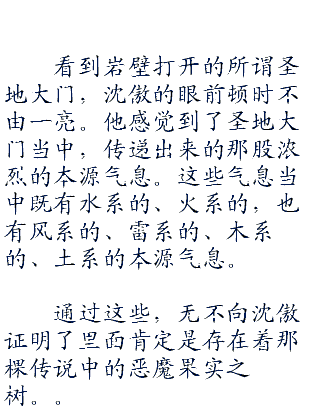 看到岩壁打开的所谓圣
地大门，沈傲的眼前顿时不
由一亮。他感觉到了圣地大
门当中，传递出来的那股浓
烈的本源气息。这些气息当
中既有水系的、火系的，也
有风系的、雷系的、木系
的、土系的本源气息。
通过这些，无不向沈傲
证明了里面肯定是存在着那
棵传说中的恶魔果实之
树。。